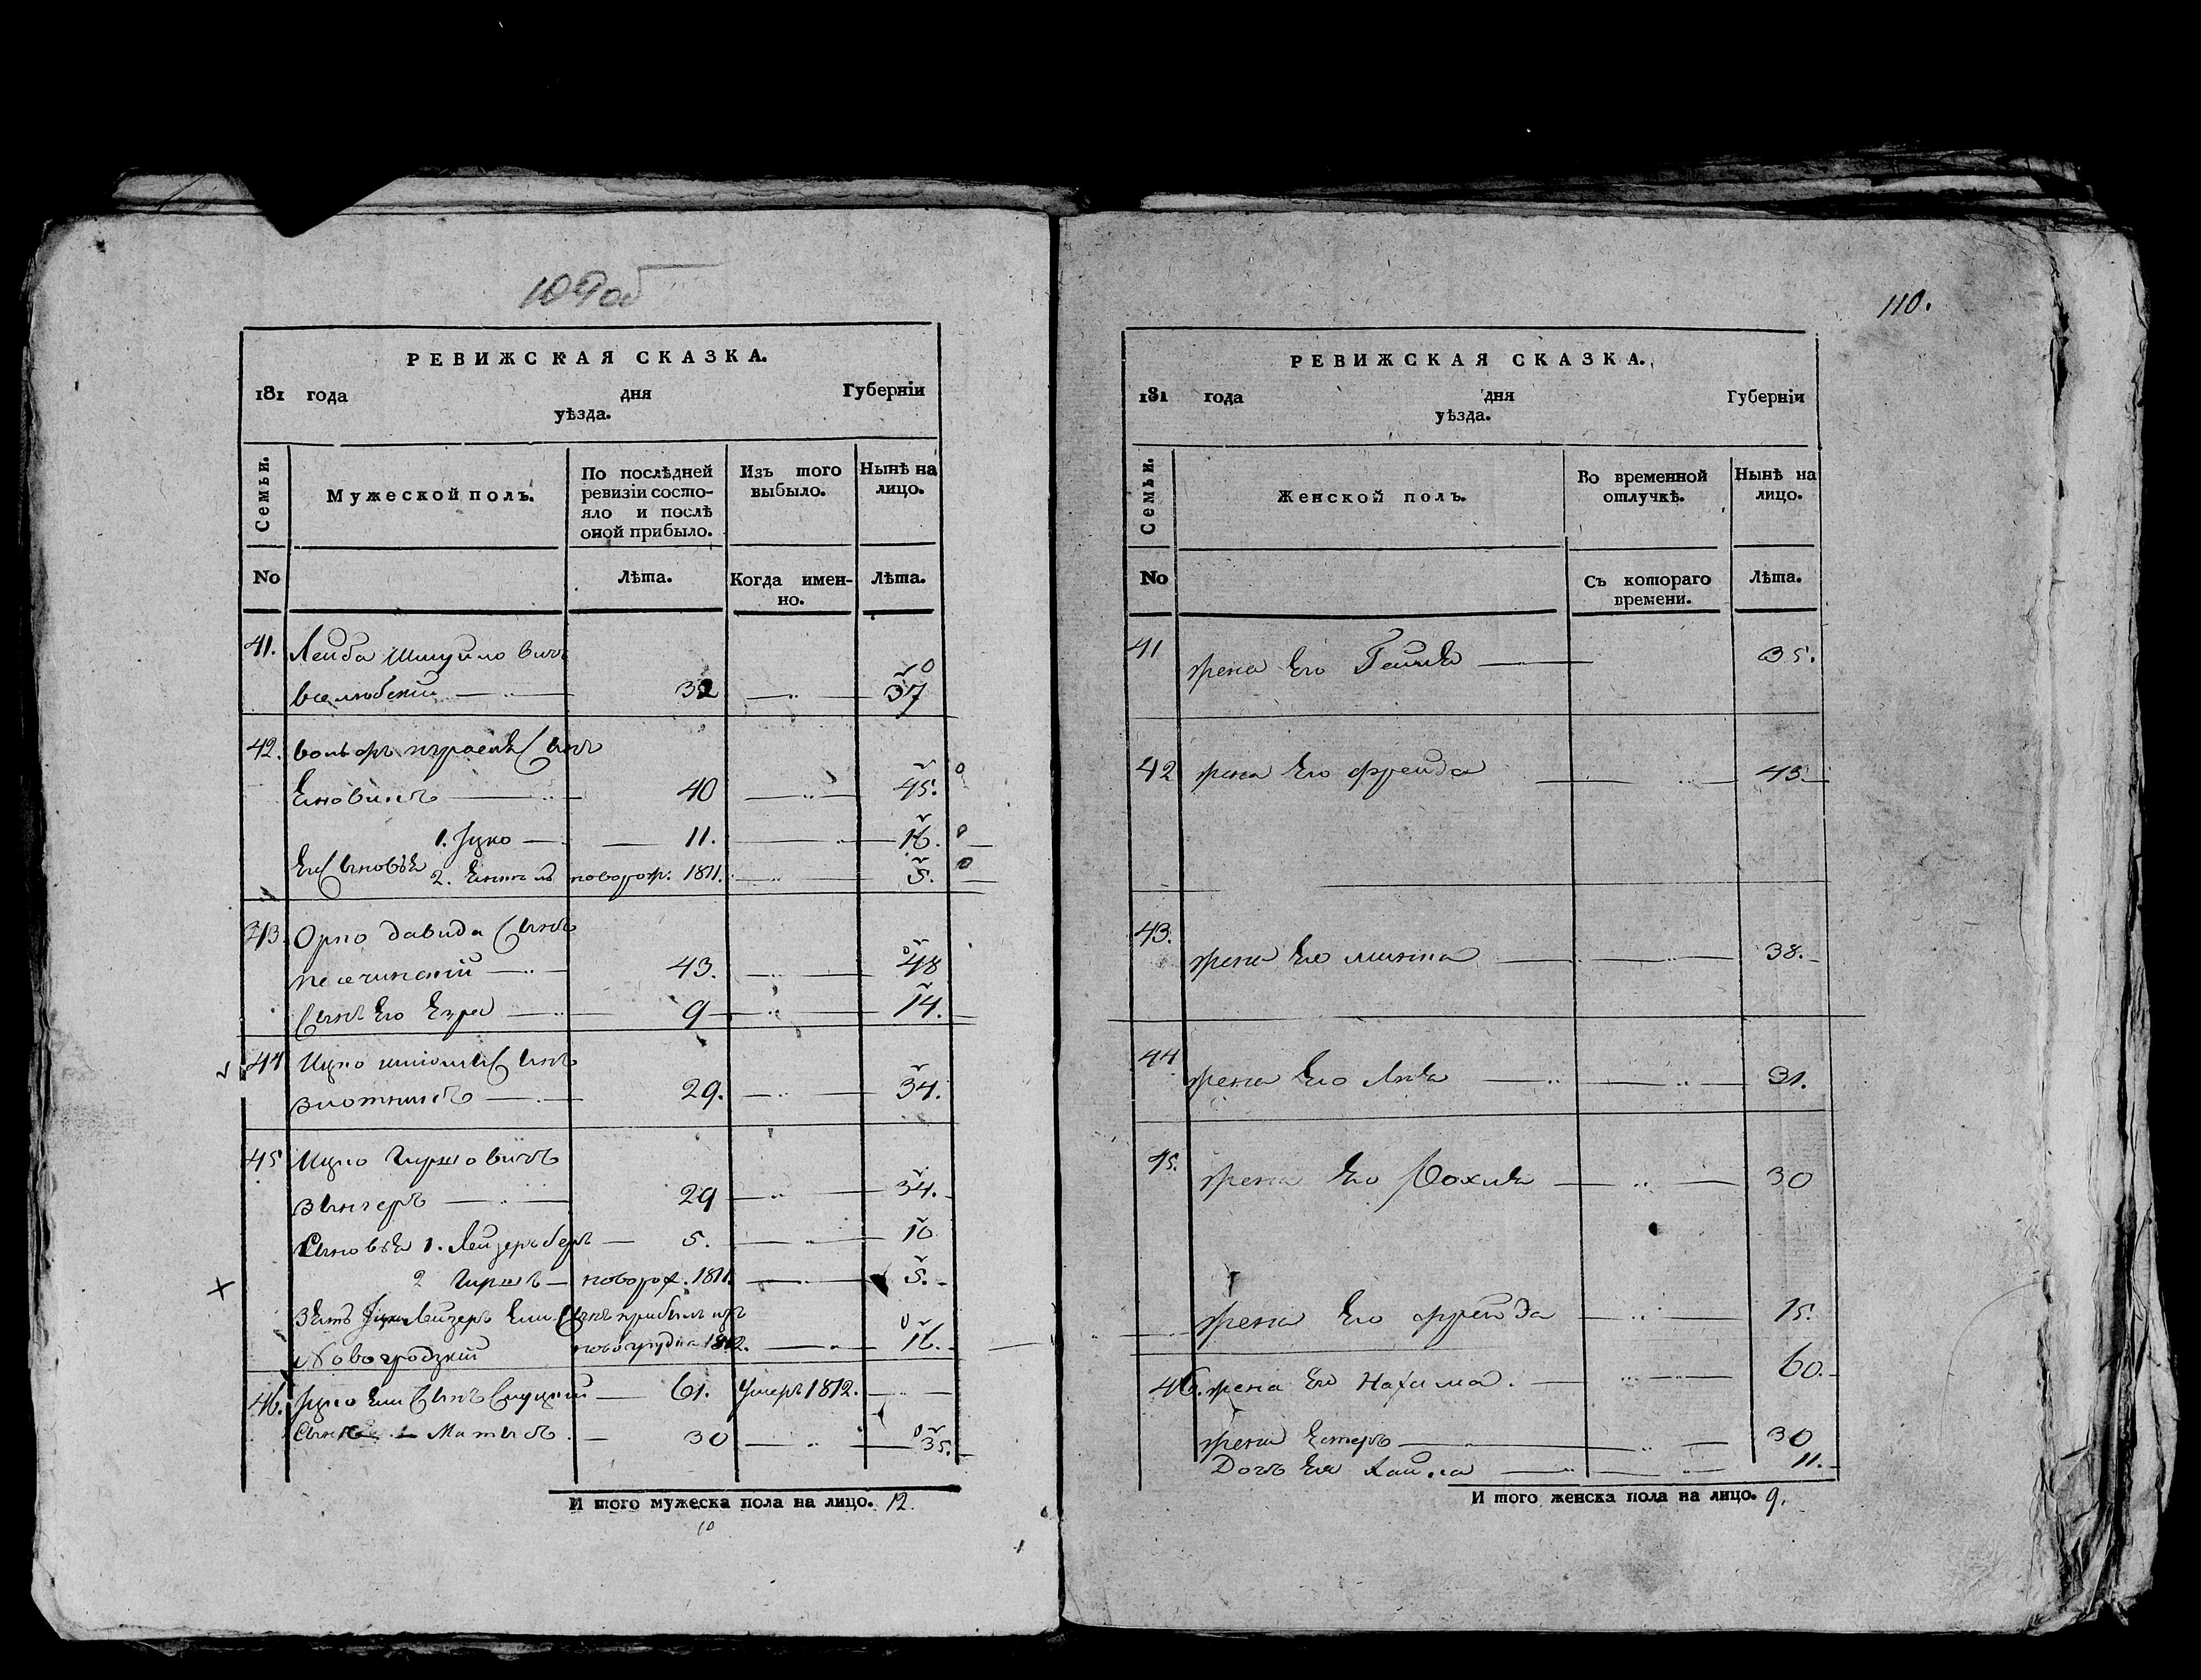 109 об
РЕВИЖСКАЯ СКАЗКА.
181 года дня Губерніи
уѣзда.
Семьи.
Мужеской полъ.
По послѣдней ревизіи состояло и послѣ оной прибыло.
Изъ того выбыло.
Нынѣ на лицо.
No
Лѣта.
Когда именно.
Лѣта.
41. Лейба Шмуйловичъ
вселюбскій 32 37
42. вольфъ израеля Сынъ
40 45.
1. Іцко 11. 16.
Его Сыновья 2. новорож. 1811. 5.
43. Орко давида Сынъ
43. 48
Сынъ Его 9 14.
44 Ицко Сынъ
злотникъ 29. 34.
45 Ицко Гиршовичъ
зынгеръ 29 34.
Сыновья 1. Лейзеръ беръ 5. 10
2 Гиршъ новорож. 1811. 5.
Зять Іцки Лейзеръ Сынъ прибылъ изъ
Новогродзкій новогрудка 1812. 16.
46. Іцко Сынъ Слуцкій 61. Умеръ 1812.
Сынъ Матысъ 30 35.
И того мужеска пола на лицо. 12.
10
110.
РЕВИЖСКАЯ СКАЗКА.
181 года дня Губерніи
уѣзда.
Семьи.
Женской полъ.
Во временной отлучкѣ.
Нынѣ на лицо.
No
Съ котораго времени.
Лѣта.
41 жена Его 35.
42 жена Его фрейда 43
43. жена Его минка 38.
44 жена Его Лея 31.
45. жена Его 30
жена Его фрейда 15.
46. жена Его Нахама. 60.
жена Естеръ 30
Дочь Ея 11.
И того женска пола на лицо. 9.